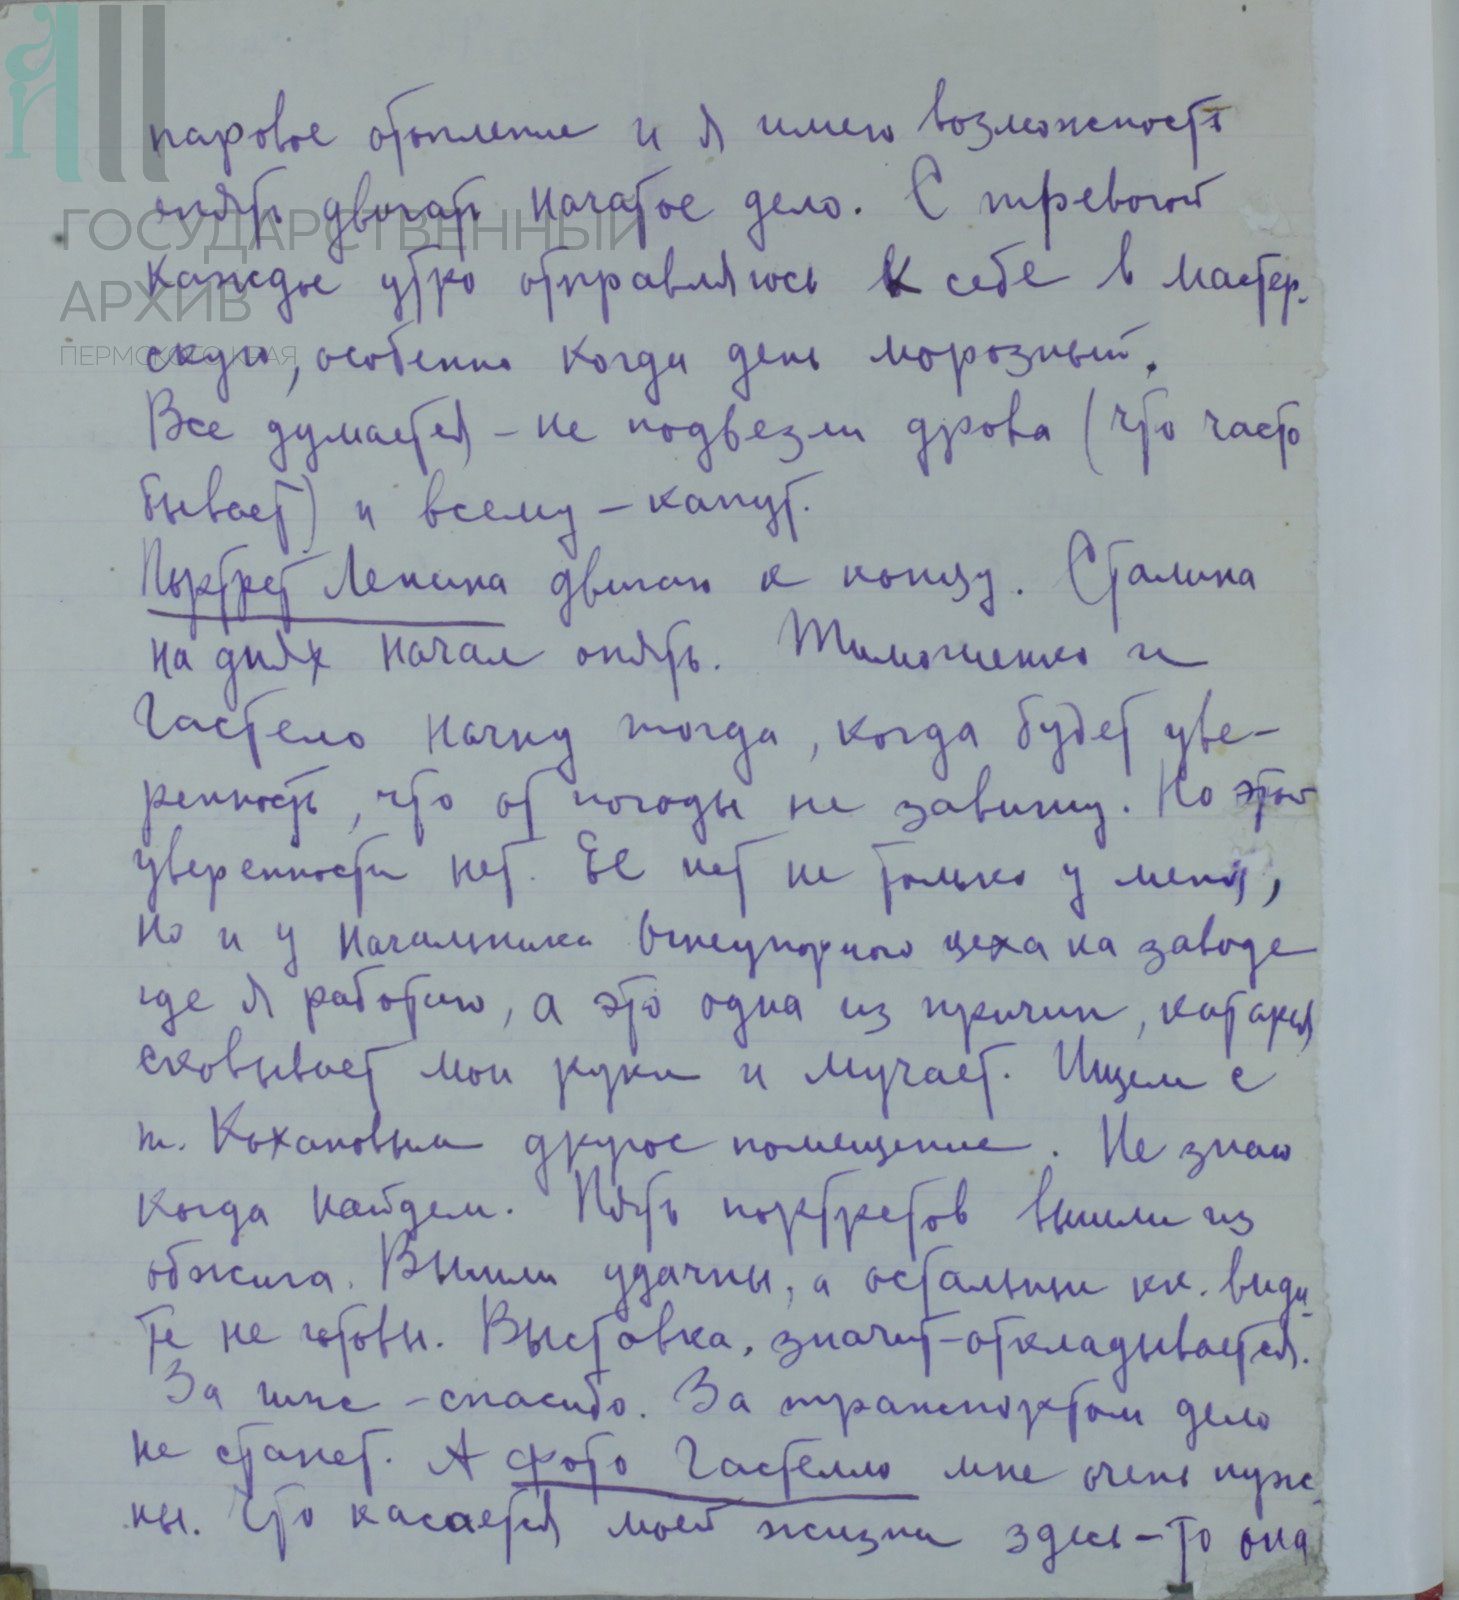 ГОСУДАРСТВЕННЫЙ
АРХИВ
ПЕРМСКОГО КРАЯ
паровое отопление и я имею возможность
опять двигать начатое дело. С тревогой
каждое утро отправляюсь к себе в мастер-
скую, особенно когда день морозный.
Все думается – не подвезли дрова (что часто
бывает) и всему – капут.
Портрет Ленина двигаю к концу. Сталина
на днях начал опять. Тимошенко и
Гастело начну тогда, когда будет уве-
ренность, что от погоды не завишу. Но этой
уверенности нет. Её нет не только у меня,
но и у начальника огнеупорного цеха на заводе
где я работаю, а это одна из причин, которая
сковывает мои руки и мучает. Ищем с
т. Кохановым другое помещение. Не знаю
когда найдем. Пять портретов вышли из
обжига. Вышли удачны, а остальные кк. види-
те не готовы. Выставка, значит – откладывается.
За гипс – спасибо. За транспортом дело
не станет. А фото Гастелло мне очень нуж-
ны. Что касается моей жизни здесь – то она